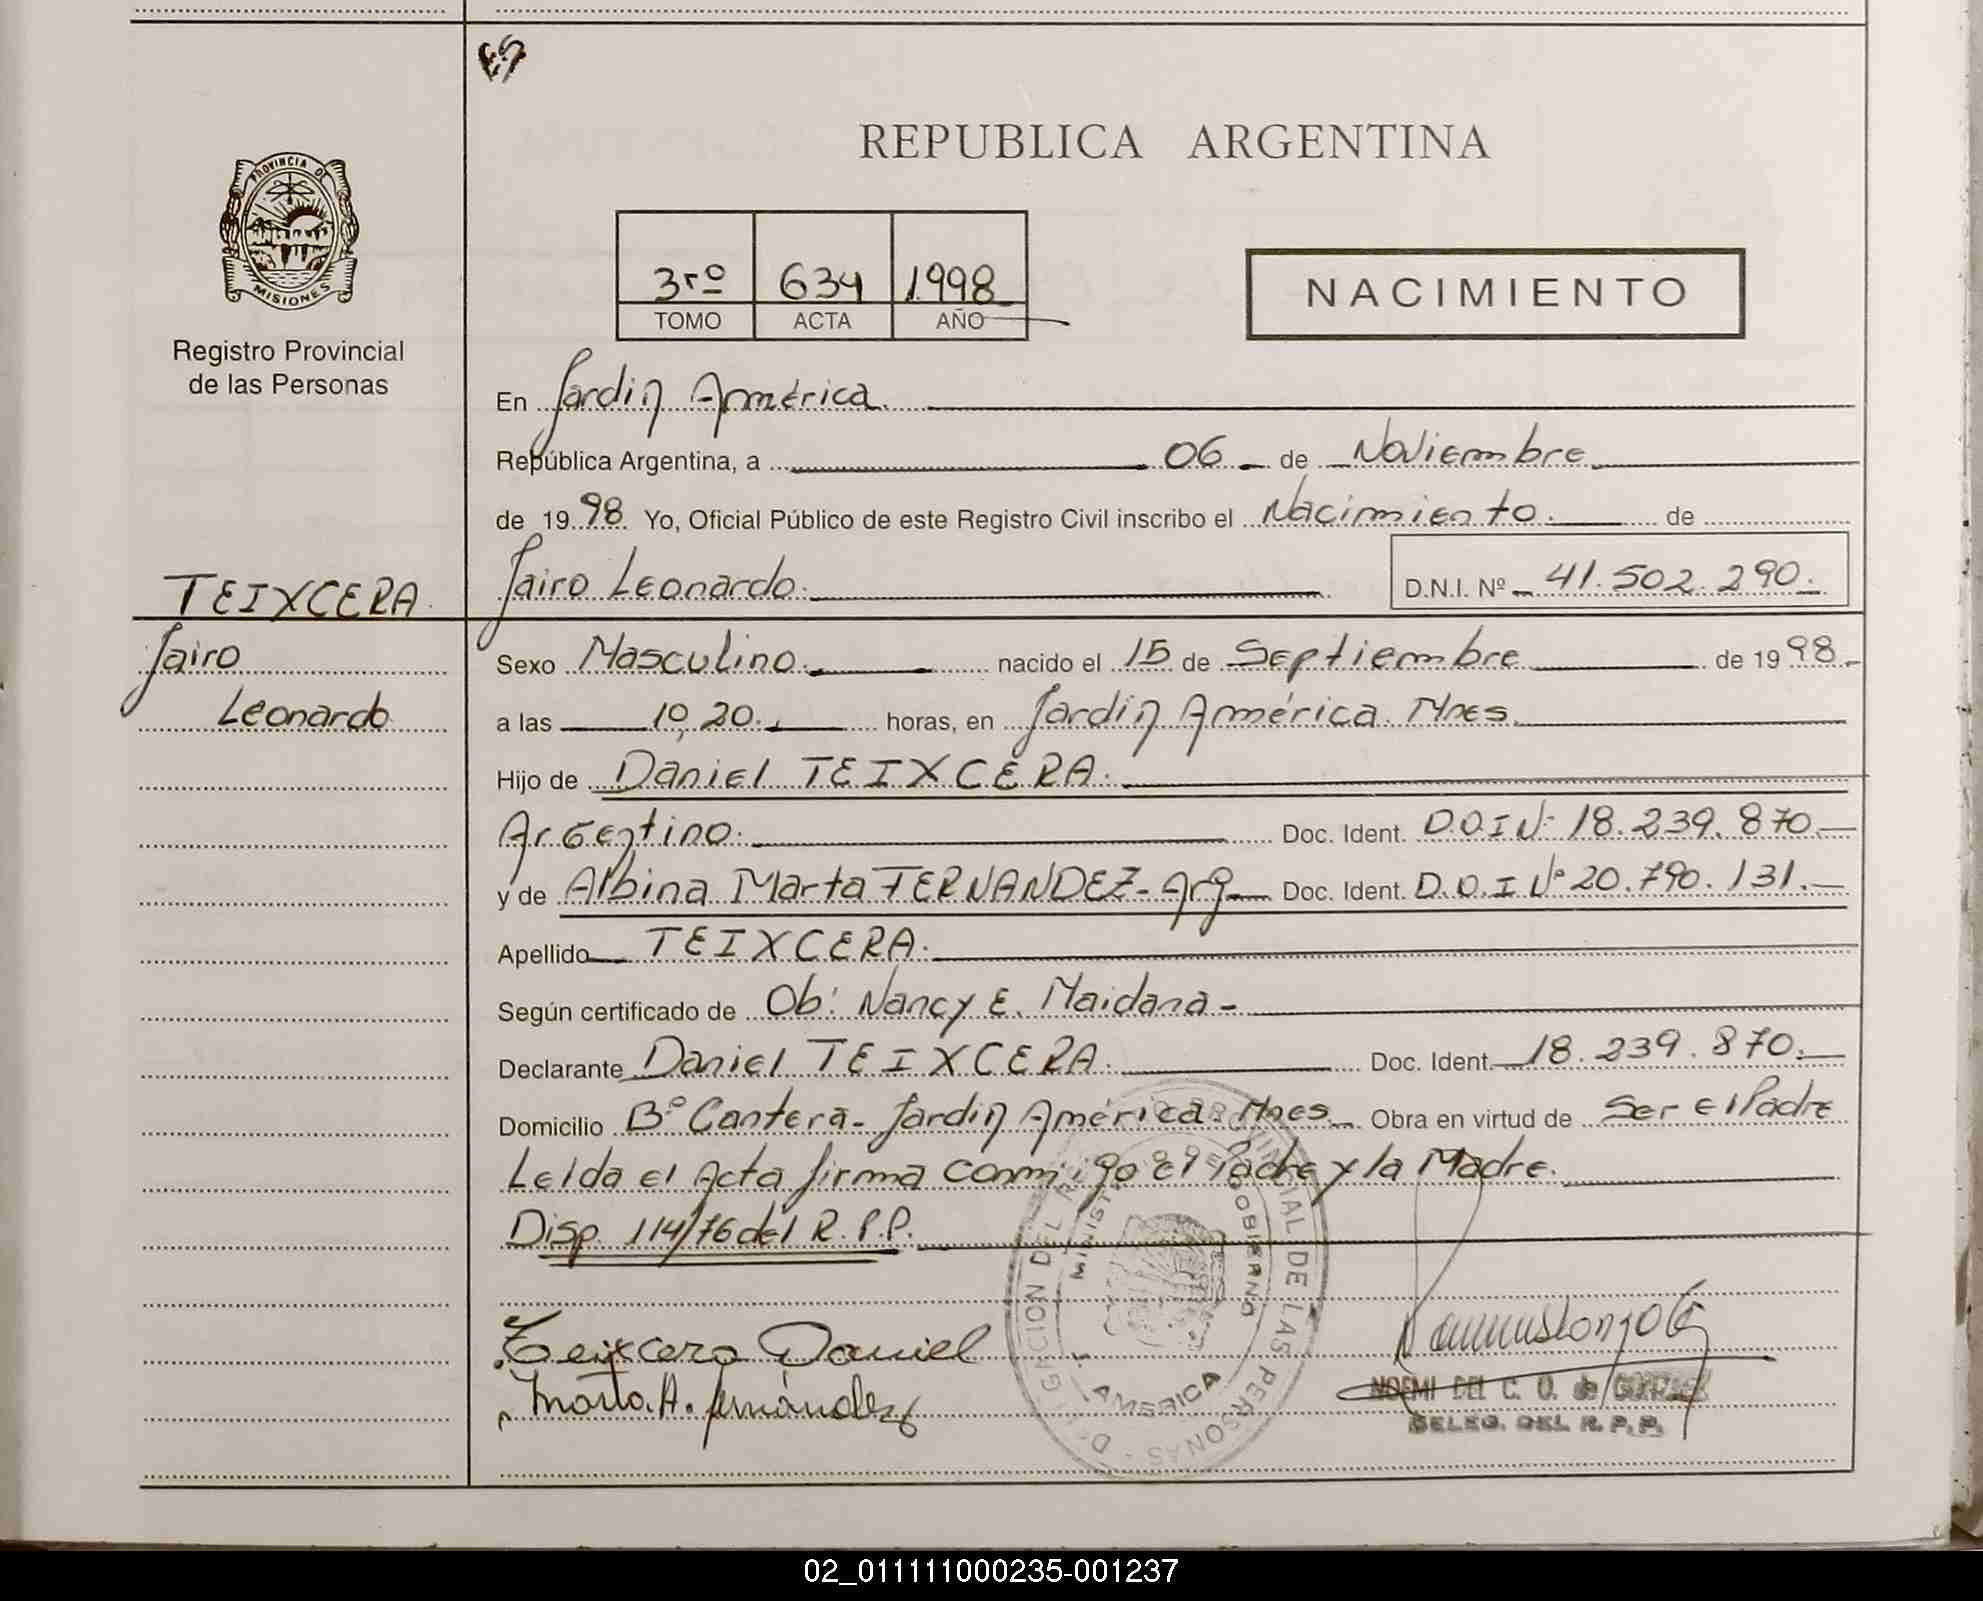 REPUBLICA ARGENTINA
PROVINCIA DE
MISIONES
Registro Provincial
de las Personas
3rº 634 1998
TOMO ACTA AÑO
NACIMIENTO
En Jardin América.
República Argentina, a 06 de Noviembre
de 1998 Yo, Oficial Público de este Registro Civil inscribo el Nacimiento. de
TEIXCERA
Jairo
Leonardo
Jairo Leonardo. D.N.I. Nº 41.502.290.
Sexo Masculino. nacido el 15 de Septiembre de 1998.
a las 10,20. horas, en Jardin América. Mnes.
Hijo de Daniel TEIXCERA.
Argentino. Doc. Ident. D.O.I Nº 18.239.870.
y de Albina Marta FERNANDEZ- Arg. Doc. Ident. D.O.I Nº 20.790.131.
Apellido TEIXCERA.
Según certificado de Ob: Nancy E. Maidana -
Declarante Daniel TEIXCERA. Doc. Ident. 18.239.870.
Domicilio Bº Cantera- Jardin América. Mnes. Obra en virtud de Ser el Padre
Leida el Acta firma conmigo el Padre y la Madre.
Disp. 114/76 del R.P.P.
Teixcera Daniel
Marta.A. fernández
NOEMI DEL C. O. de
DELEG. DEL R. P. P.
PROVINCIAL DE LAS PERSONAS
GOBIERNO
AMERICA
02_011111000235-001237